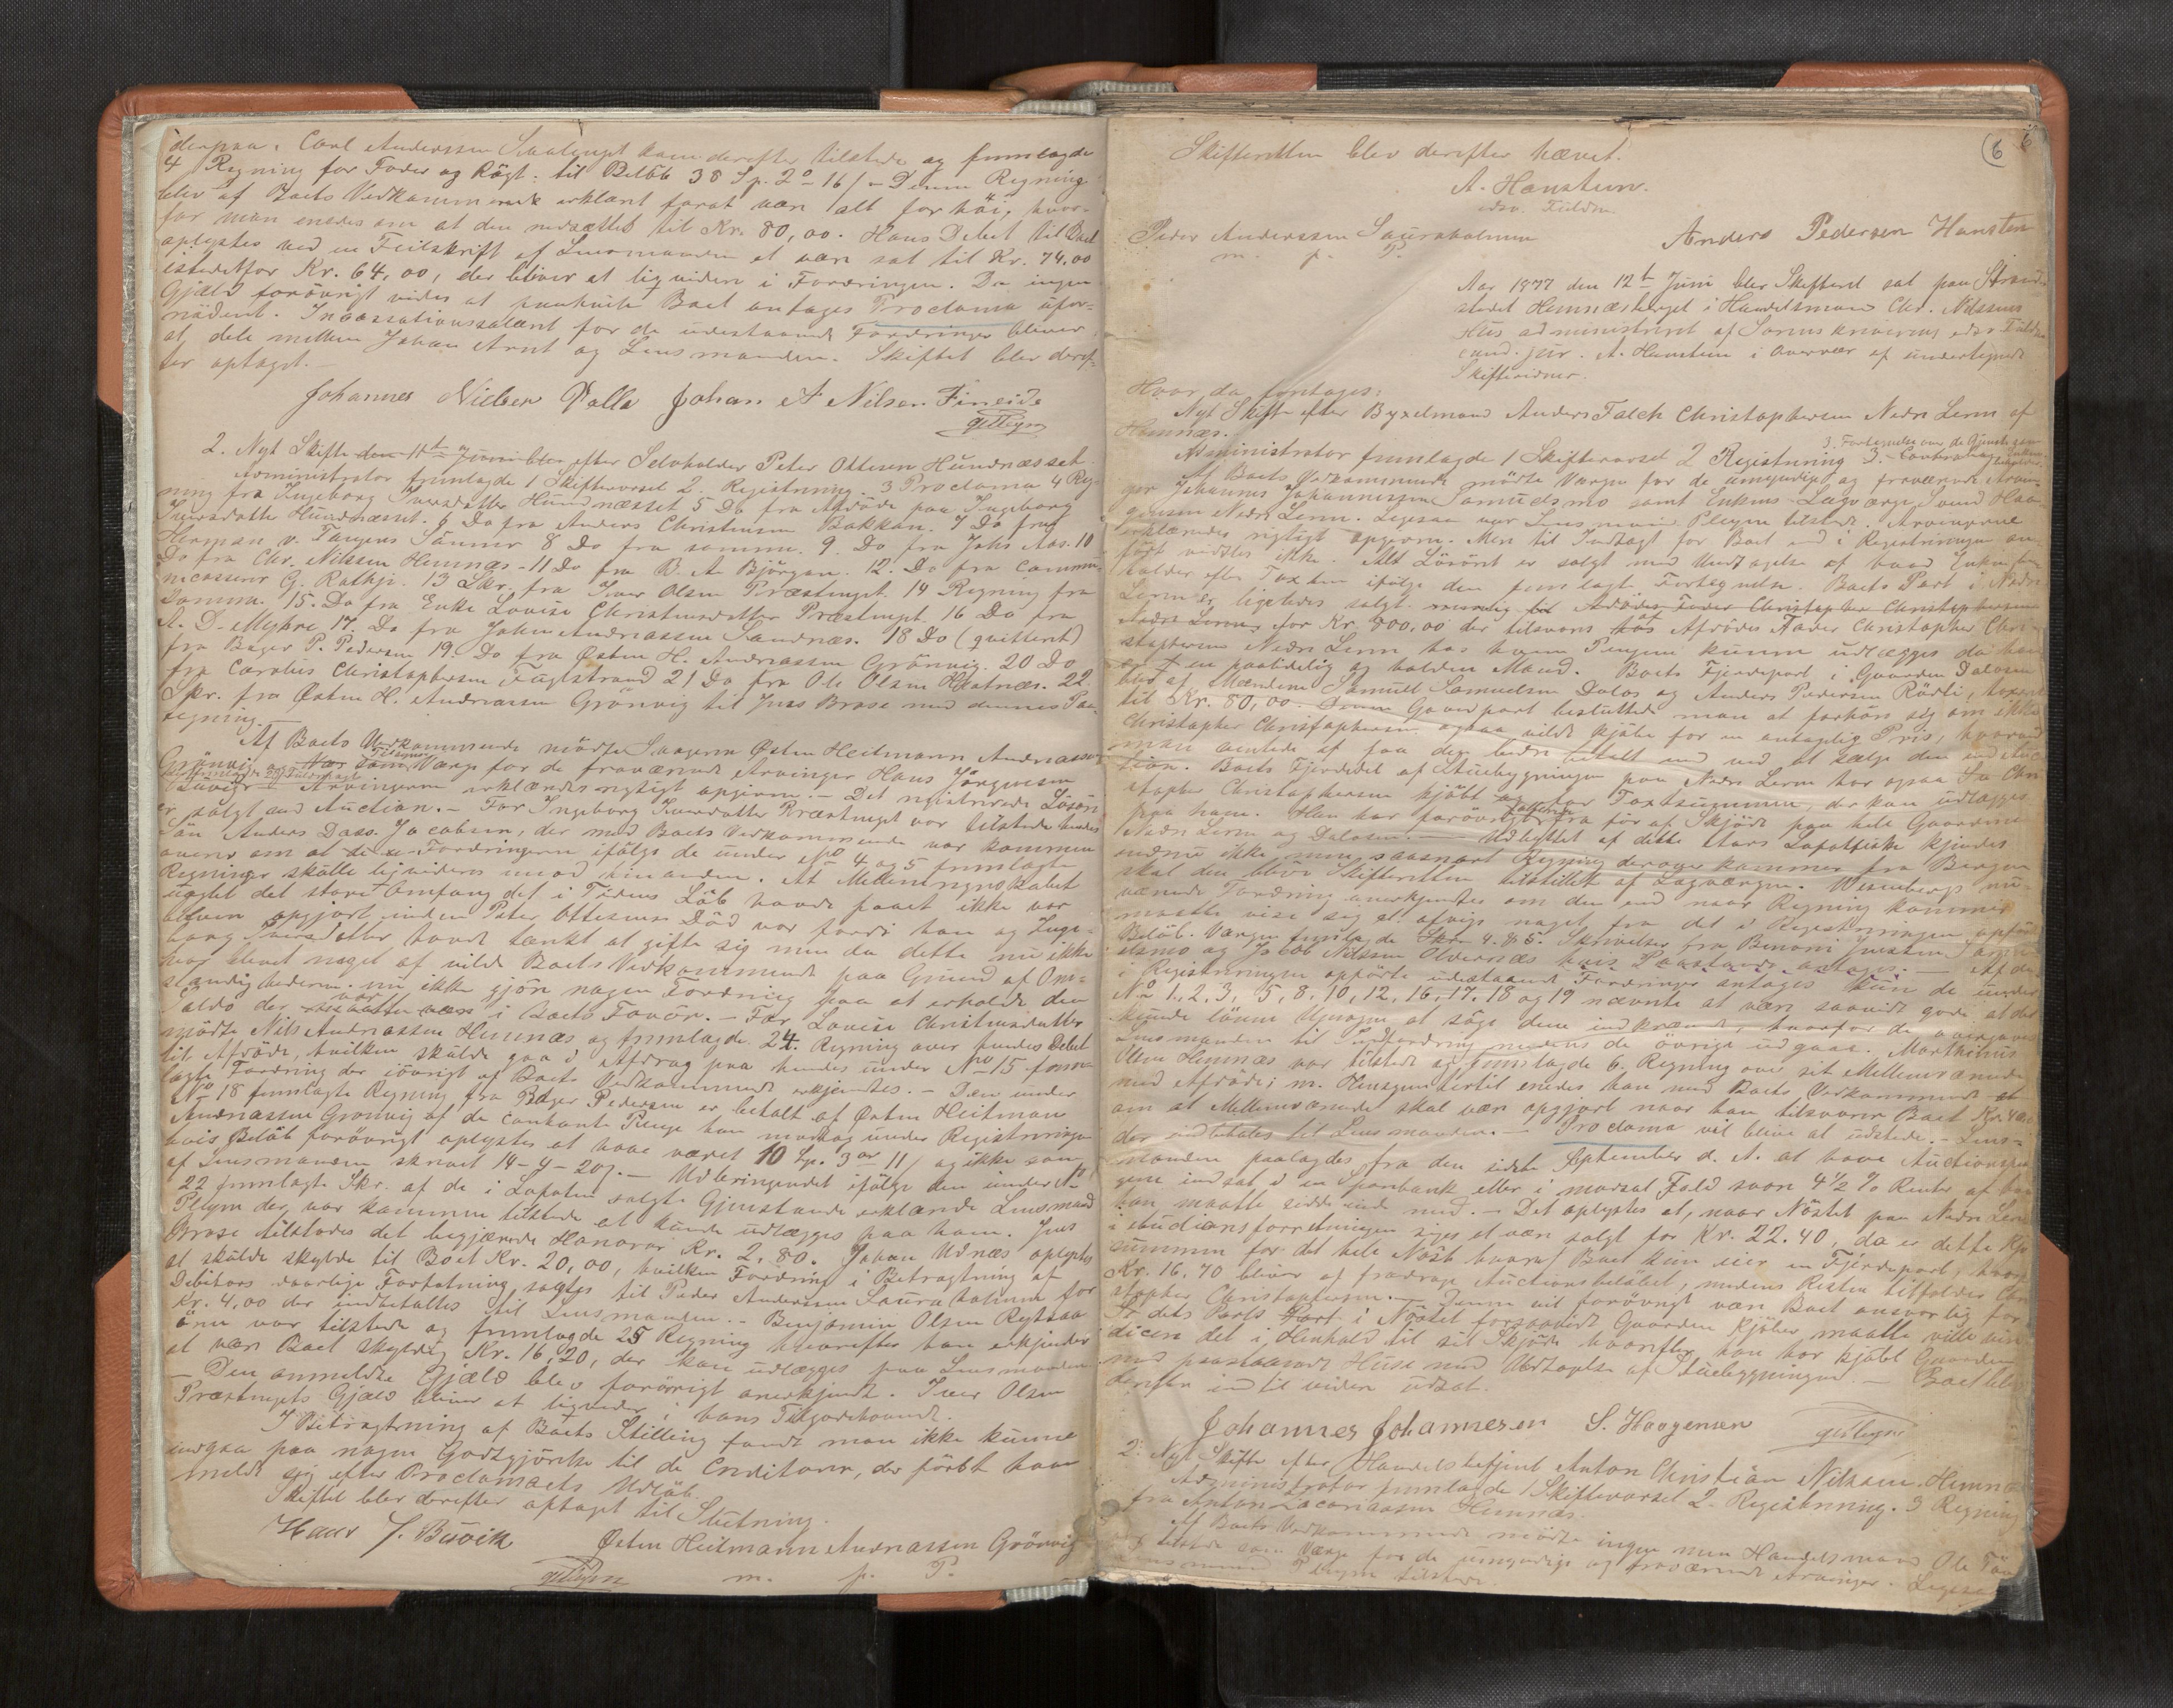 derpaa. Carl Anderssen Smalinget kom derefter tilstede og fremlagde
4 Regning for Foder og Rögt. til Beløb 38 Sp. 2 - 16/ - Denne Regning
blev af Boets Vedkommende erklæret forat være alt for höi, hvor-
for man enedes om at den nedsættes til Kr. 80,00. Hans Debet til Boet
oplystes ved en Feilskrift af Lensmanden at være sat til Kr. 74,00
istedetfor Kr. 64,00, der bliver at liqvidere i Fordringen. Da ingen
Gjæld forövrigt vides at paahvile Boet antages Proclama ufor-
nödent. Incassationssalæret for de udestaaende Fordringer bliver
at dele mellem Johan Arnt og Lensmanden. Skiftet blev deref-
ter optaget. -
Johannes Nielsen Valla Johan A Nilsen Fineide
GPleym
2. Nyt Skifte den 11te Juni blev efter Selveholder Peter Ottesen Hundnæsset.
Administrator fremlagde 1 Skiftevarsel 2. Registrering 3 Proclama 4 Reg-
ning fra Ingeborg Iversdatter Hundnæsset 5 Do fra Afdöde paa Ingeborg
Iversdatter Hundnæsset. 6 Do fra Anders Christensen Bakken. 7 Do fra
Herman v. Tangens Sönner 8 Do fra samme. 9. Do fra Johs Aas. 10
Do fra Chr. Nilssen Hemnæs - 11 Do fra B. A. Björgan. 12. Do fra Commu-
necasserer G. Rathje. 13 Skr. fra Iver Olsen Præstenget. 14 Regning fra
Samme. 15. Do fra Enke Lovise Christensdatter Præstenget. 16 Do fra
A. D. Myhre 17. Do fra Johan Andreassen Sandnæs. 18 Do (qvitteret)
fra Bager P. Pedersen 19. Do fra Østen H. Andreassen Grönvig. 20 Do
fra Carolus Christophersen Fuglstrand 21 Do fra Ole Olsen Hestnæs. 22
Skr. fra Østen H. Andreassen Grönvig til Jens Brose med dennes Paa-
tegning. -
Af Boets Vedkommende mödte Svogeren Østen Heitmann Andreassen
Grönvig og som Værge for de fraværende Arvinger Hans Jörgensen
fremlagde 23 Fuldmagt
Buvig - Arvingerne erklæredes rigtigt opgivne. - Det registrerede Lösöre
er solgt ved Auction. - For Ingeborg Iversdatter Præstenget var tilstede hendes
Sön Anders Dass Jacobsen, der med Boets Vedkommende var kommen
overens om at de Fordringerne ifölge de under No 4 og 5 fremlagte
Regninger skulle liqvideres imod hinanden. At Mellemregnskabet
uagtet det store Omfang det i Tidens Löb havde faaet ikke var
bleven opgjort inden Peter Ottesens Död var fordi han og Inge-
borg Iversdatter havde tænkt at gifte sig men da dette nu ikke
har blevet noget af vilde Boets Vedkommende paa Grund af Om-
stændighederne nu ikke gjöre nogen Fordring paa at erholde den
Saldo der var i Boets Favör. - For Lovise Christensdatter
mödte Nils Andreassen Hemnæs og fremlagde 24. Regning over hendes Debet
til Afdöde, hvilken skulde gaa i Afdrag paa hendes under No 15 frem-
lagte Fordring der iövrigt af Boets Vedkommende erkjendtes. - Den under
No 18 fremlagte Regning fra Bager Pedersen er betalt af Østen Heitman
Andreassen Grönvig af de contante Penge han modtog under Registreringen
hvis Belöb forövrigt oplystes at have været 10 Sp. 3 ort 11/ og ikke som
af Lensmanden skrevet 14 - 4 - 20/. - Udbringendet ifölge den under No
22 fremlagte Skr. af de i Lofoten solgte Gjenstande erklærede Lensmand
Pleym der var kommen tilstede at kunde udlægges paa ham. Jens
Brose tilstodes det begjærede Honorar Kr. 2,80. Johan Udnæs oplystes
at skulde skylde til Boet Kr. 20,00, hvilken Fordring i Betragtning af
Debitors daarlige Forfatning solgtes til Peder Anderssen Sauraholmen for
Kr. 4,00 der indbetaltes til Lensmanden. - Benjamin Olsen Rytraa
ören var tilstede og fremlagde 25 Regning hvorefter han erkjender
at være Boet skyldig Kr. 16,20, der kan udlægges paa Lensmanden
- Den anmeldte Gjæld blev forövrigt anerkjendt. Iver Olsen
Præstengets Gjæld bliver at liqvidere i hans Tilgodehavende.
I Betragtning af Boets Stilling fandt man ikke kunne
indgaa paa nogen Godtgjörelse til de Creditorer, der först have
meldt sig efter Proclamaets Udlöb.
Skiftet blev derefter optaget til Slutning.
Hans J. Buvik Østen Heitmann Andreassen Grönvig
GPleym m. p. P.
6 6
Skifteretten blev derefter hævet.
A. Hansteen.
edsv. Fuldm
Peder Anderssen Sauraholmen Anders Pedersen Hansten
m. p. P.
Aar 1877 den 12te Juni blev Skifteret sat paa Strand-
stedet Hemnæsberget i Handelsmand Chr. Nilssens
Hus administreret af Sorenskriverens edsv. Fuldm
cand. jur. A. Hansteen i Overvær af undertegnede
Skiftevidner.
Hvor da foretages:
Nyt Skifte efter Byxelmand Anders Falch Christophersen Nedre Leren af
Hemnæs.
3. Fortegnelse over de Gjenstande som Enken
Administrator fremlagde 1 Skiftevarsel 2 Registrering 3.
Af Boets Vedkommende mödte Værgen for de umyndige og fraværende Arvin-
ger Johannes Johannessen Samuelsmo samt Enkens Lagværge Svend Haa-
gensen Nedre Leren. Ligesaa var Lensmand Pleym tilstede. Arvingerne
erklæredes rigtigt opgivne. Mere til Indtægt for Boet end i Registreringen an-
fört vidstes ikke. Alt Lösöret er solgt med Undtagelse af hvad Enken be-
holder efter Taxten ifölge den fremlagte Fortegnelse. Boets Part i Nedre
Leren er ligeledes solgt Afdödes Fader Christopher Christophersen
Nedre Leren, for Kr. 800,00 der tilsvares af Afdödes Fader Christopher Chri-
stophersen Nedre Leren hos hvem Pengene kunne udlægges da han
er en paalidelig og holden Mand. Boets Fjerdepart i Gaarden Dalosen
blev af Mændene Samuel Samuelsen Dalos og Anders Pedersen Rödli, taxeret
til Kr. 80,00. Gaardpart besluttede man at forhöre sig om ikke
Christopher Christophersen ogsaa vilde kjöbe for en antagelig Pris, hvorved
man ventede at faa den bedre betalt end ved at sælge den ved Auc-
tion. Boets Fjerdedel af Stuebygningen paa Nedre Leren har ogsaa Chri-
stopher Christophersen kjöbt for Taxtsummen, der kan udlægges
paa ham. Han har forövrigt fra för af Skjöde paa hele Gaardene
Nedre Leren og Dalosen. - Udbyttet af dette Aars Lofotfiske kjendes
endnu ikke, men saasnart Regning derover kommer fra Bergen
skal den blive Skifteretten tilstillet af Lagværgen. Wesenbergs nu-
værende Fordring anerkjendtes om den end naar Regning kommer
maatte vise sig at afvige noget fra det i Registreringen opförte
Belöb. Værgen fremlagde Skr. 4 & 5. Skrivelser fra Benoni Justsen Samu-
elsmo og Jakob Nilssen Oldernæs hvis Paastande antages. - Af de
i Registreringen opförte udestaaende Fordringer antages kun de under
No 1, 2, 3, 5, 8, 10, 12, 16, 17, 18 og 19 nævnte at være saavidt gode at det
kunde lönne Umagen at söge dem indkrævet, hvorfor de overgaves
Lensmanden til Indfordring medens de övrige udgaar. Marthinus
Olsen Hemnæs var tilstede og fremlagde 6. Regning over sit Mellemværende
med Afdöde; m. Hensyn hertil enedes han med Boets Vedkommende
om at Mellemværende skal være opgjort naar han tilsvarer Boet Kr. 4,00
der indbetales til Lensmanden. - Proclama vil blive at udstede. - Lens-
manden paalagdes fra den sidste September d. A. at have Auctionspen-
gene indsat i en Sparebank eller i modsat Fald svare 4 1/2 % Renter af hvad
han maatte sidde inde med. - Det oplystes at, naar Nöstet paa Nedre Leren
i Auctionsforretningen siges at være solgt for Kr. 22.40, da er dette Kjöbe-
summen for det hele Nöst hvoraf Boet kun eier en Fjerdepart, hvor
Kr. 16,70 bliver at fradrage Auctionsbelöbet, medens Resten tilfalder Chri-
stopher Christophersen. - Denne vil forövrigt være Boet ansvarlig for
dets Parts Part i Nöstet forsaavidt Gaardens Kjöber maatte ville vin-
dicere det i Henhold til sit Skjöde hvorefter han har kjöbt Gaarden
med paastaaende Huse med Undtagelse af Stuebygningen. - Boet blev
derefter indtil videre udsat.
Johannes Johannesen S. Haagensen GPleym
2. Nyt Skifte efter Handelsbetjent Anton Christian Nilssen Hemnæs
Administrator fremlagde 1 Skiftevarsel 2. Registrering. 3 Regning
fra Anton Zacariassen Hemnæs.
Af Boets Vedkommende mödte ingen men Handelsmand Ole Tön-
tilstede som Værge for de umyndige og fraværende Arvinger. Ligesaa
Lensmand Pleym tilstede